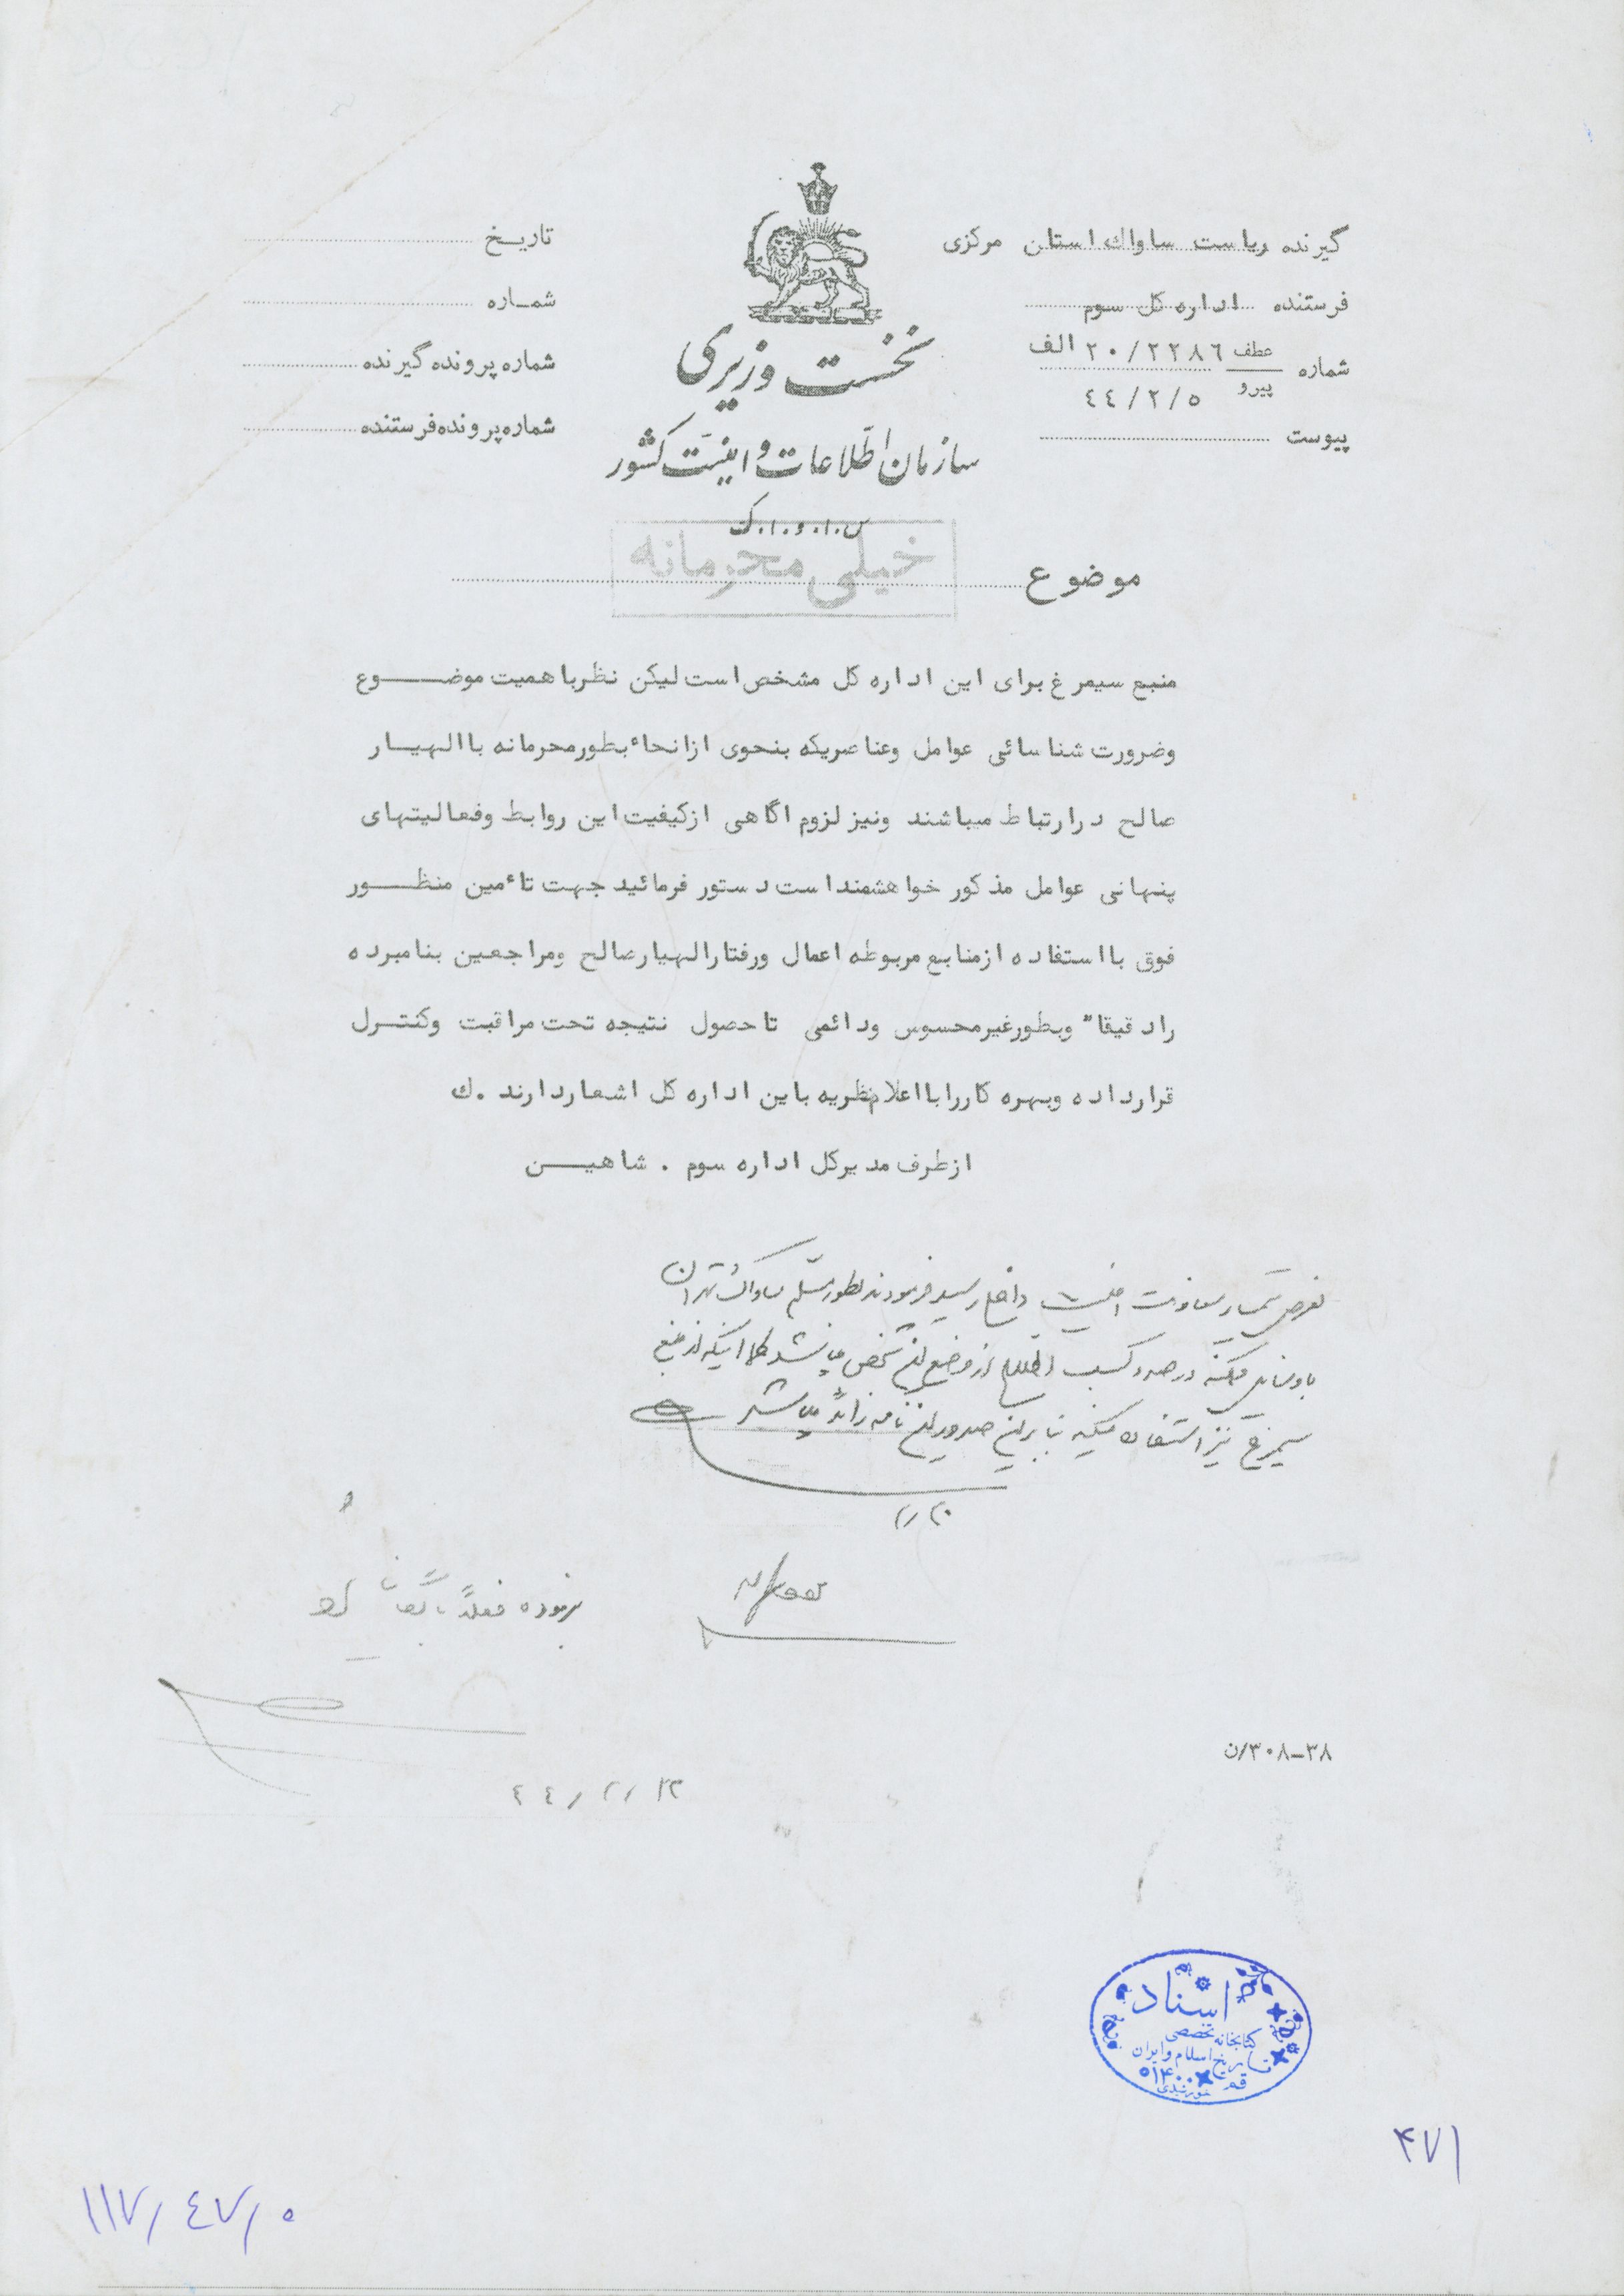 گیرنده ریاست ساواك استان مرکزی
فرستنده اداره کل سوم
شماره عطف ۲۰/۲۲۸۶ الف
پیرو ۴۴/۲/۵
پیوست
نخست وزیری
سازمان اطلاعات و امنیت کشور
س.ا.و.ا.ک
تاریخ
شماره
شماره پرونده گیرنده
شماره پرونده فرستنده
خیلی محرمانه
موضوع
منبع سیمرغ برای این اداره کل مشخص است لیکن نظر باهمیت موضوع
وضرورت شناسائی عوامل وعناصریکه بنحوی ازانحاء بطورمحرمانه باالهیار
صالح درارتباط میباشند ونیز لزوم اگاهی ازکیفیت این روابط وفعالیتهای
پنهانی عوامل مذکور خواهشمنداست دستور فرمائید جهت تاءمین منظور
فوق بااستفاده ازمنابع مربوطه اعمال ورفتارالهیارصالح ومراجعین بنامبرده
رادقیقا" وبطورغیرمحسوس ودائمی تاحصول نتیجه تحت مراقبت وکنترل
قرارداده وبهره کاررابااعلام نظریه باین اداره کل اشعاردارند .ك
ازطرف مدیرکل اداره سوم . شاهین
بعرض تیمسار معاونت رسید فرمودند بطور مسلم ساواک تهران
با وسایل ممکنه درصدد کسب اطلاع از وضع این شخص میباشد کما اینکه از منبع
سیمرغ نیز استفاده میکند بنابراین صدور این نامه زائد میباشد
۲/۲۰
فعلاً بایگانی
۴۴/۲/
۳۸-۳۰۸/ن
اسناد
کتابخانه تخصصی
تاریخ اسلام و ایران
قم
۴۷۱
۱۱۷/۴۷/۰